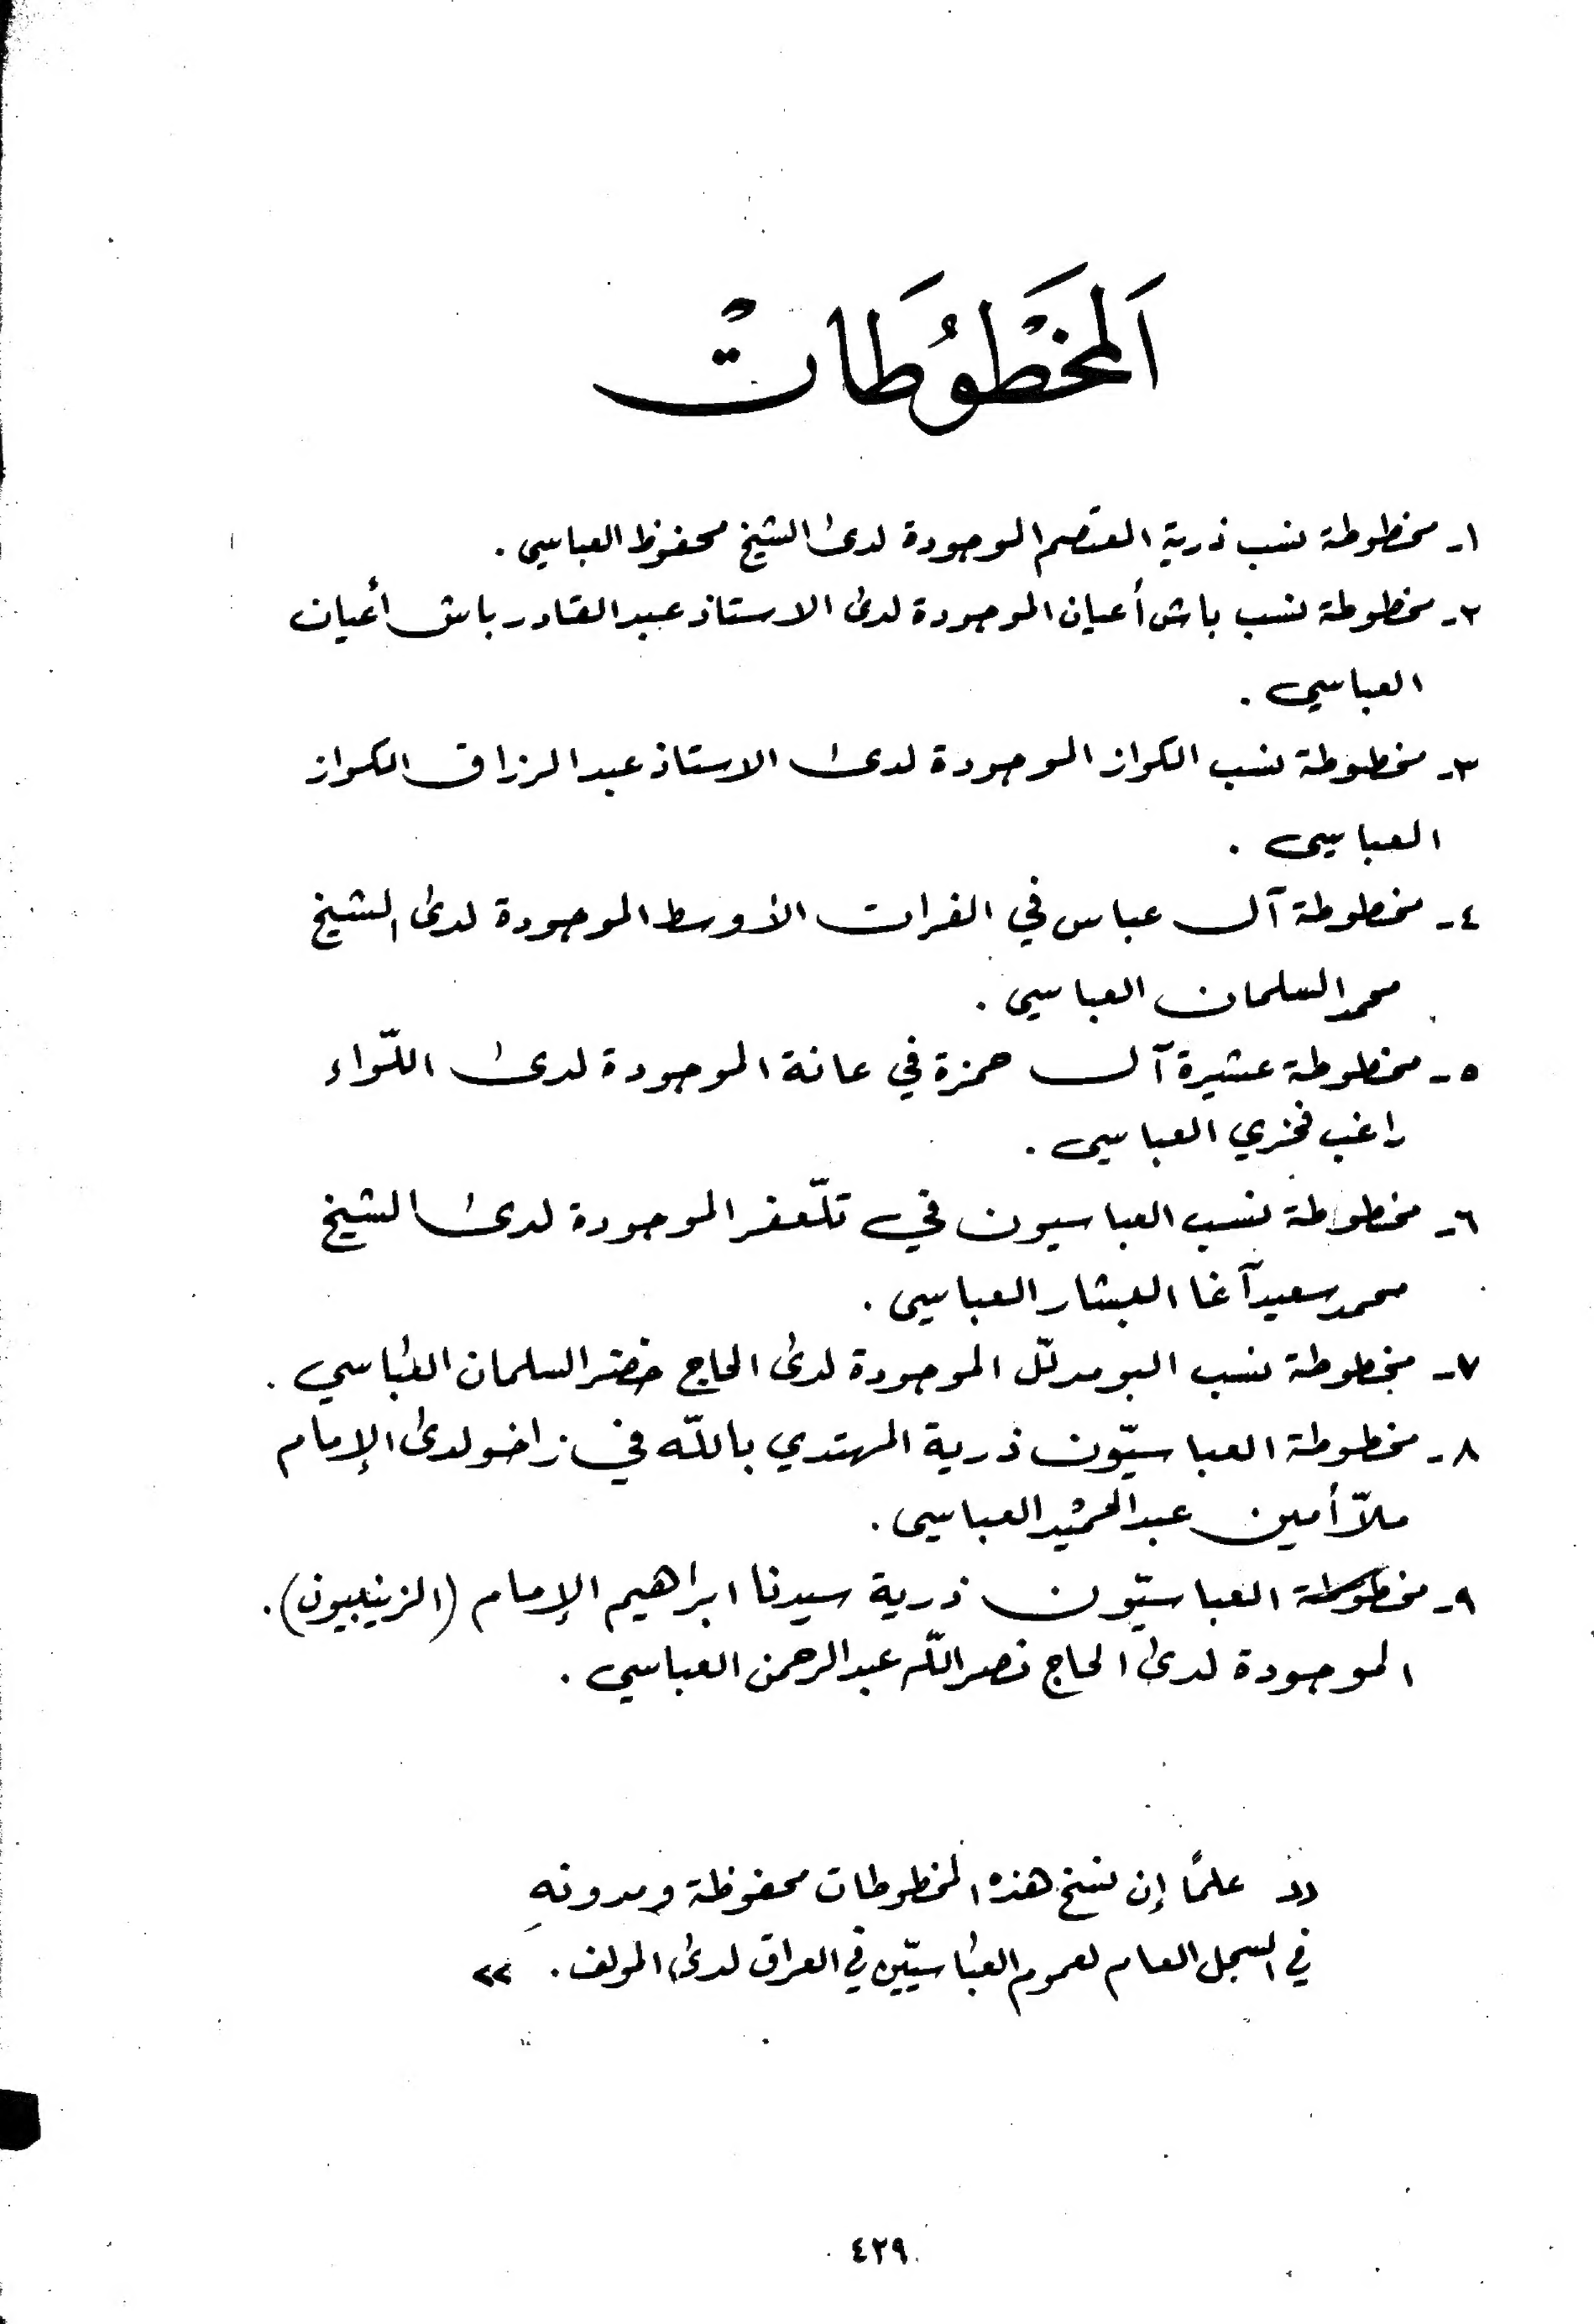 اَلمَخْطَوُطَاتْ
١ـ مخطوطة نسب ذرية المعتصم الموجودة لدى الشيخ محفوظ العباسي .
٢ـ مخطوطة نسب باش أعيان الموجودة لدى الاستاذ عبد القادر باش أعيان
العباسي .
٣ـ مخطوطة نسب الكواز الموجودة لدى الاستاذ عبد الرزاق الكواز
العباسي .
٤ـ مخطوطة آل عباس في الفرات الأوسط الموجودة لدى الشيخ
محمد السلمان العباسي .
٥ـ مخطوطة عشيرة آل حمزة في عانة الموجودة لدى اللّواء
راغب فخري العباسي .
٦ـ مخطوطة نسب العباسيون في تلّعفر الموجودة لدى الشيخ
محمد سعيد آغا العشار العباسي .
٧ـ مخطوطة نسب البومدلّل الموجودة لدى الحاج خضر السلمان العباسي .
٨ـ مخطوطة العباسيّون ذرية المهتدي باللّه في زاخو لدى الإمام
ملاّ أمين عبد الحميد العباسي .
٩ـ مخطوطة العباسيّون ذرية سيدنا ابراهيم الإمام (الزينبيون) .
الموجودة لدى الحاج نصر اللّه عبد الرحمن العباسي .
« علمًا إن نسخ هذه المخطوطات محفوظة ومدونهِ
في السجل العام لعموم العباسيّين في العراق لدى المولف . »
٤٢٩